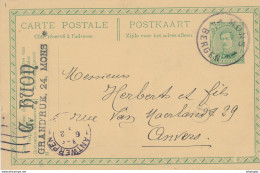 CARTE POSTALE
POSTKAART
Côté réservé à l'adresse.
Zijde voor het adres alleen.
MONS
BERGEN
G. HUON
GRAND'RUE, 24, MONS
Messieurs
Herbert et fils
rue Van Maerlant 39
Anvers
ANTWERPEN